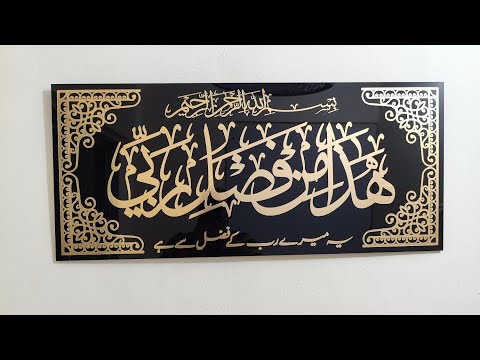 بسم الله الرحمن الرحيم
هَذَا مِن فَضْلِ رَبِّي
یہ میرے رب کے فضل سے ہے